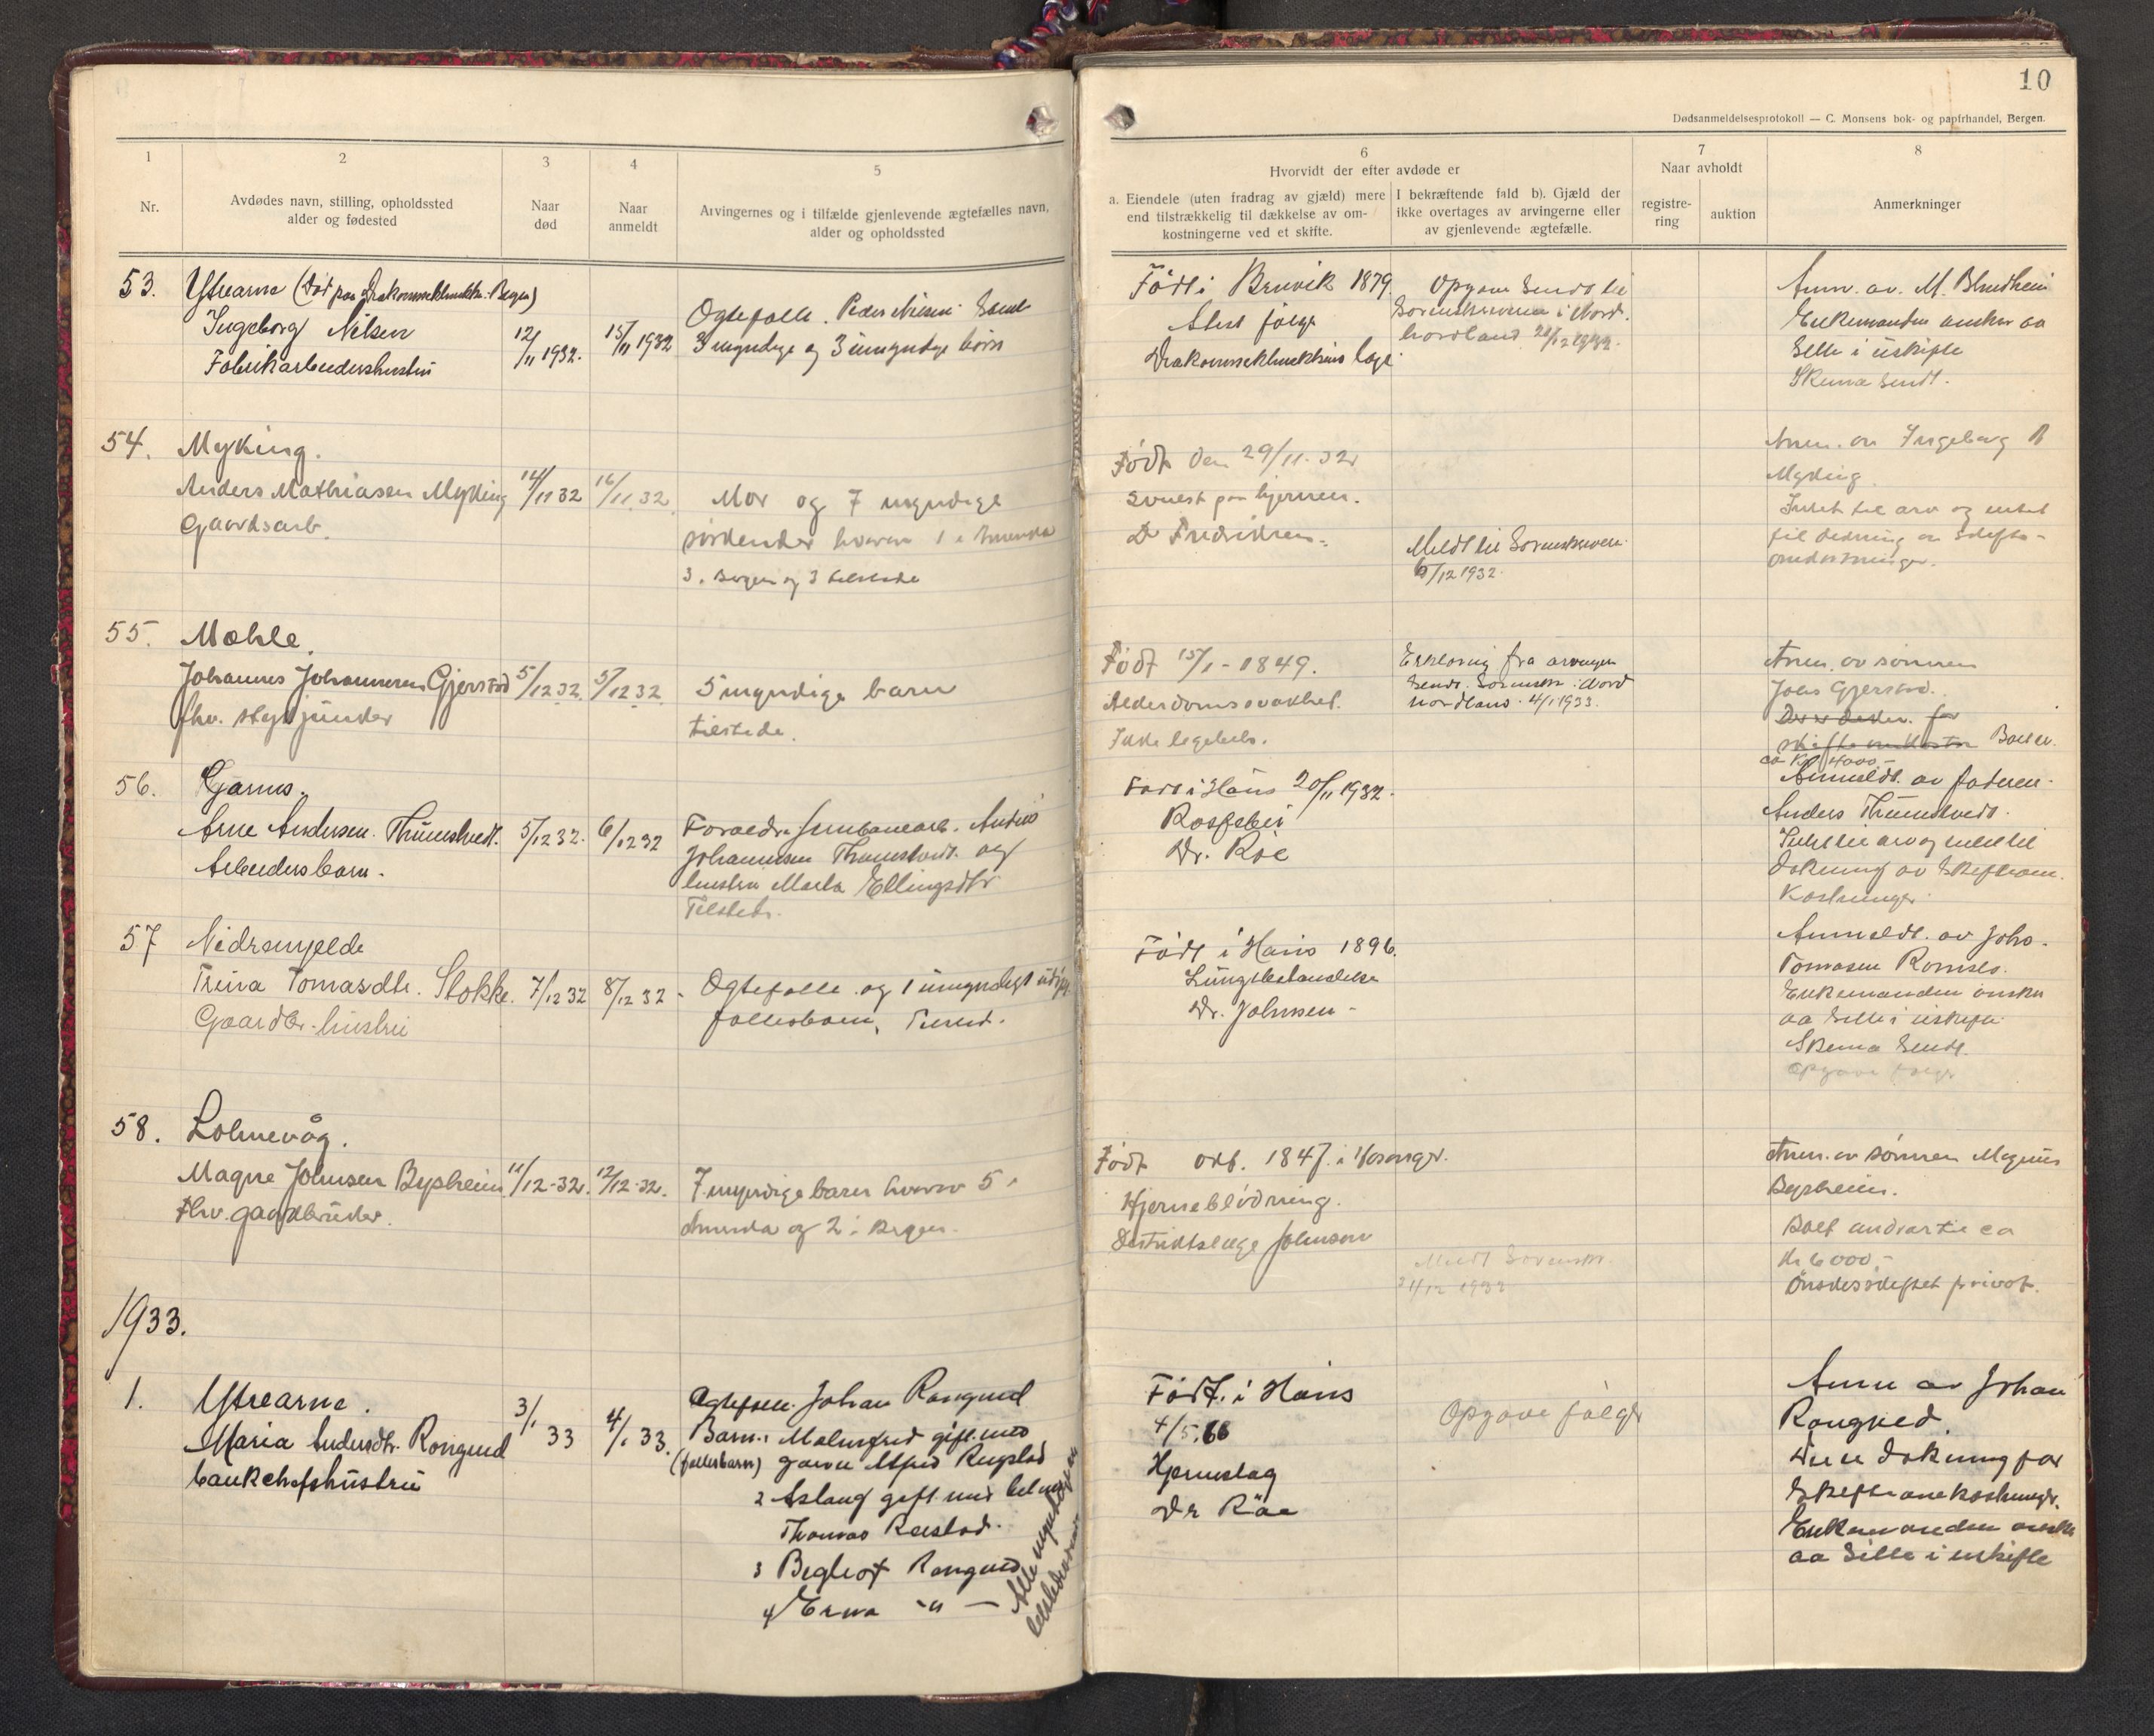 10
Dødsanmeldelsesprotokoll — C. Monsens bok- og papirhandel, Bergen.
1
Nr.
2
Avdødes navn, stilling, opholdssted
alder og fødested
3
Naar
død
4
Naar
anmeldt
5
Arvingernes og i tilfælde gjenlevende ægtefælles navn,
alder og opholdssted
6
Hvorvidt der efter avdøde er
a. Eiendele (uten fradrag av gjæld) mere
end tilstrækkelig til dækkelse av om-
kostningerne ved et skifte.
I bekræftende fald b). Gjæld der
ikke overtages av arvingerne eller
av gjenlevende ægtefælle.
7
Naar avholdt
registre-
ring
auktion
8
Anmerkninger
53.
Ytrearne (Død paa
Ingeborg Nilsen
Fabrikarbeidershustru
12/11 1932.
15/11 1932
Ogtefolle. Peder Nilsen
3 myndige og 3 umyndige børn
Født i Bruvik 1879
Attest følge
læge
Opgave sendt til
Sorenskriveren i Nord.
hordland 28/12 1932.
Anm. av. M. Blindheim
Enkemanden ønsker aa
sitte i uskifte
Skema sendt.
54.
Myking.
Anders Mathiasen Myking
Gaardsarb.
14/11 32
16/11 32.
Mor og 7 myndige
søskender hvorav 1 i Amerika
3 i Bergen og 3 tilstede
Født den 29/11-32
svulst paa hjernen.
Meldt til Sorenskriveren
6/12 1932.
Anm. av Ingeborg
Myking.
Intet til arv og intet
til dekning av skifte-
omkostninger.
55.
Mæhle.
Johannes Johannesen Gjersvad
fhv.
5/12 32.
5/12 32
5 myndige barn
tilstede.
Født 15/1-1849.
Alderdomssvakhet.
Ikke legehels.
Erklæring fra arvingen
sendt Sorenskr. i Nord
hordland. 4/1 1933.
Anm. av sønnen
Johs Gjersvad.
for
ca Kr 4000.-
56.
Garnes.
Arne Andersen. Thunestvedt.
Arbeidersbarn.
5/12 32.
6/12 32
Foraeldre Jernbanearb. Anders
Johannesen Thunestvedt. og
hustru Marta Ellingsdtr
Tilstede.
Født i Haus 20/11 1932.
Dr. Roe
Anmeldt. av faderen.
Anders Thunestvedt.
Intet til arv og intet til
dekning av Skifteom.
kostninger.
57
Nedremjelde
Trina Tomasdtr. Stokke.
Gaardbr. hustru
7/12 32
8/12 32.
Ogtefolle og 1 umyndigt
fellesbarn,
Født i Haus 1896.
Lungebetændelse
Dr. Johnsen.
Anmeldt. av Johs.
Tomasen
Enkemanden ønsker
aa sitte i uskifte
Skema sendt.
Opgave følger
58.
Lonevåg.
Magne Johnsen Bysheim
Fhv. gaardbruker.
11/12-32.
12/12-32.
7 myndige barn hvorav 5 i
Amerika og 2 i Bergen.
Født okt. 1847 i Hosanger.
Hjerneblødning.
Distriktslæge Johnsen
Meldt Sorenskr.
Anm. av sønnen Magnus
Bysheim.
Boet andrar til ca
Kr 6000.-
Ønskes skiftet privat.
1933.
1.
Ytrearne.
Maria Andersdtr. Rongved
bankchefshustru
3/1 33
4/1 33.
Ogtefolle. Johan Rongved
Barn: 1 Malmfrid gift med
(fellesbarn)
2 Aslaug gift med
Thomas
3 Bergliot Rongved
4 Erna -"-
Alle myndige og
tilstedeværende
Født i Haus
4/5.66
Hjerneslag
Dr Råe
Opgave følger
Anm av Johan
Rongved.
Der er dekning for
Skifteomkostninger.
Enkemanden ønsker
aa sitte i uskifte